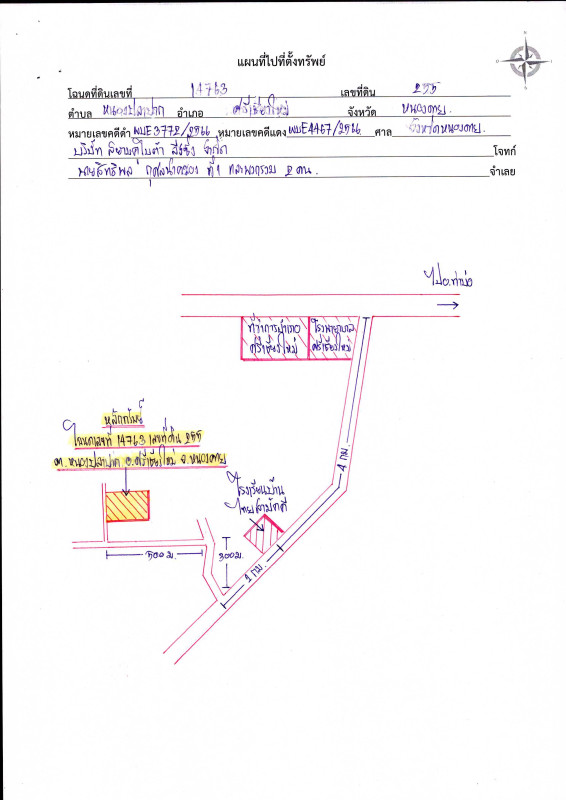 แผนที่ไปที่ตั้งทรัพย์
โฉนดที่ดินเลขที่ 14763 เลขที่ดิน 255
ตำบล หนองปลาปาก อำเภอ ศรีเชียงใหม่ จังหวัด หนองคาย
หมายเลขคดีดำ ผบE3772/2566 หมายเลขคดีแดง ผบE4467/2566 ศาล จังหวัดหนองคาย
บริษัท ลีซซิ่ง จำกัด โจทก์
นายสิทธิพล ที่1 กับพวกรวม 2 คน จำเลย
ไปอ.ท่าบ่อ
ที่ว่าการอำเภอ ศรีเชียงใหม่
โรงพยาบาล ศรีเชียงใหม่
หลักทรัพย์
โฉนดเลขที่ 14763 เลขที่ดิน 255
ต.หนองปลาปาก อ.ศรีเชียงใหม่ จ.หนองคาย
4 กม.
โรงเรียนบ้าน
ไทยสามัคคี
500 ม.
300 ม.
1 กม.